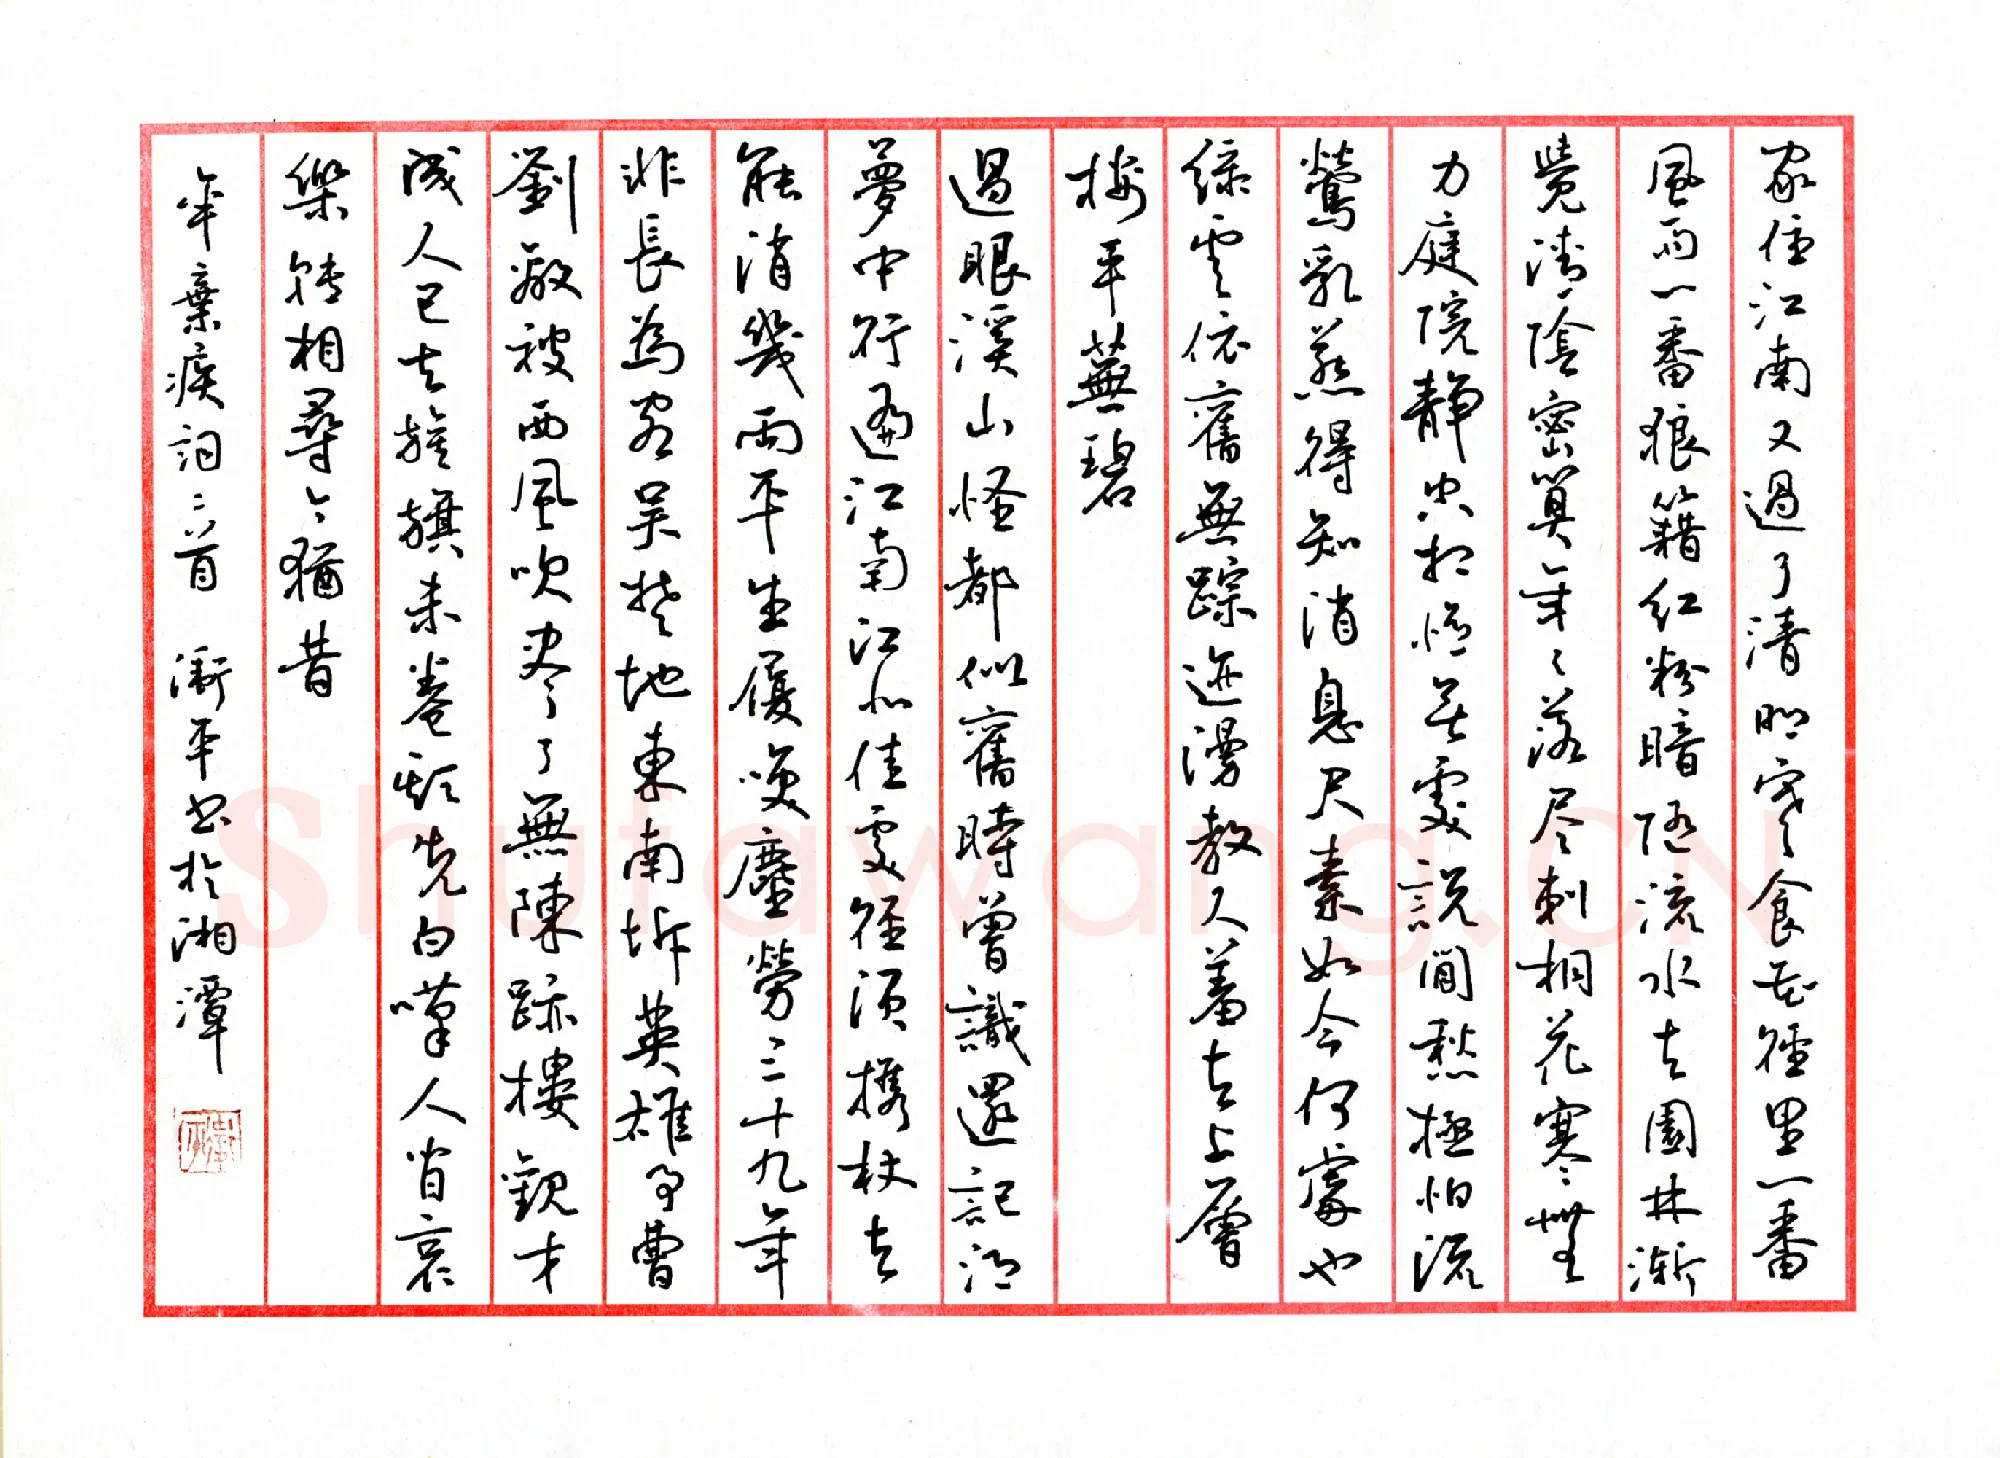 家住江南又過了清明寒食花徑里一番
風雨一番狼籍红粉暗随流水去園林漸
覺清陰密算年々落尽刺桐花寒無
力庭院静空相憶無處説閒愁極怕流
鶯乳燕得知消息尺素如今何處也
綠雲依舊無踪迹漫教人羞去上層
樓平蕪碧
過眼溪山怪都似舊時曾識還記得
夢中行遍江南江北佳處徑須携杖去
能消幾兩平生屐笑塵勞三十九年
非長為客吴楚地東南坼英雄事曹
劉敵被西風吹尽了無陳跡樓觀才
成人已去旌旗未卷頭先白嘆人间哀
樂轉相尋今猶昔
辛棄疾詞二首 衛平书於湘潭
Shufawang.CN